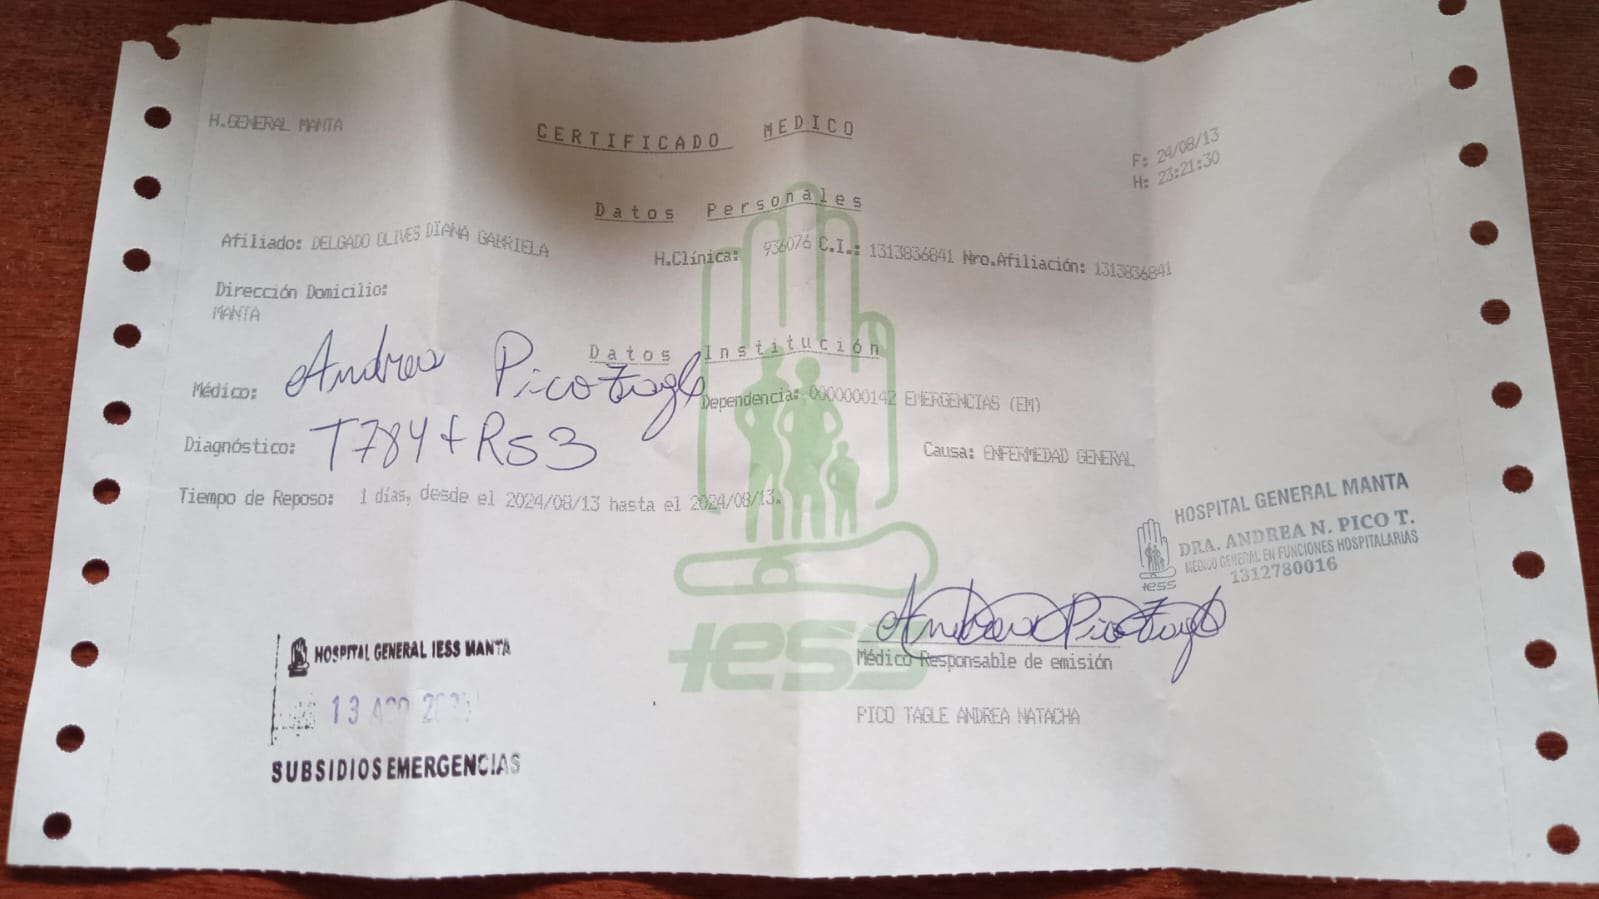 H.GENERAL MANTA
CERTIFICADO MEDICO
F: 24/08/13
H: 23:21:30
Datos Personales
Afiliado: DELGADO OLIVES DIANA GABRIELA H.Clínica: 936076 C.I.: 1313836841 Nro.Afiliación: 1313836841
Dirección Domicilio:
MANTA
Datos Institución
Médico: Andrea Pico Tagle Dependencia: 0000000142 EMERGENCIAS (EM)
Diagnóstico: T784+R53 Causa: ENFERMEDAD GENERAL
Tiempo de Reposo: 1 días, desde el 2024/08/13 hasta el 2024/08/13.
HOSPITAL GENERAL MANTA
DRA. ANDREA N. PICO T.
MÉDICO GENERAL EN FUNCIONES HOSPITALARIAS
1312780016
iess
Andrea Pico Tagle
Médico Responsable de emisión
PICO TAGLE ANDREA NATACHA
iess
HOSPITAL GENERAL IESS MANTA
13 AGO
SUBSIDIOS EMERGENCIAS